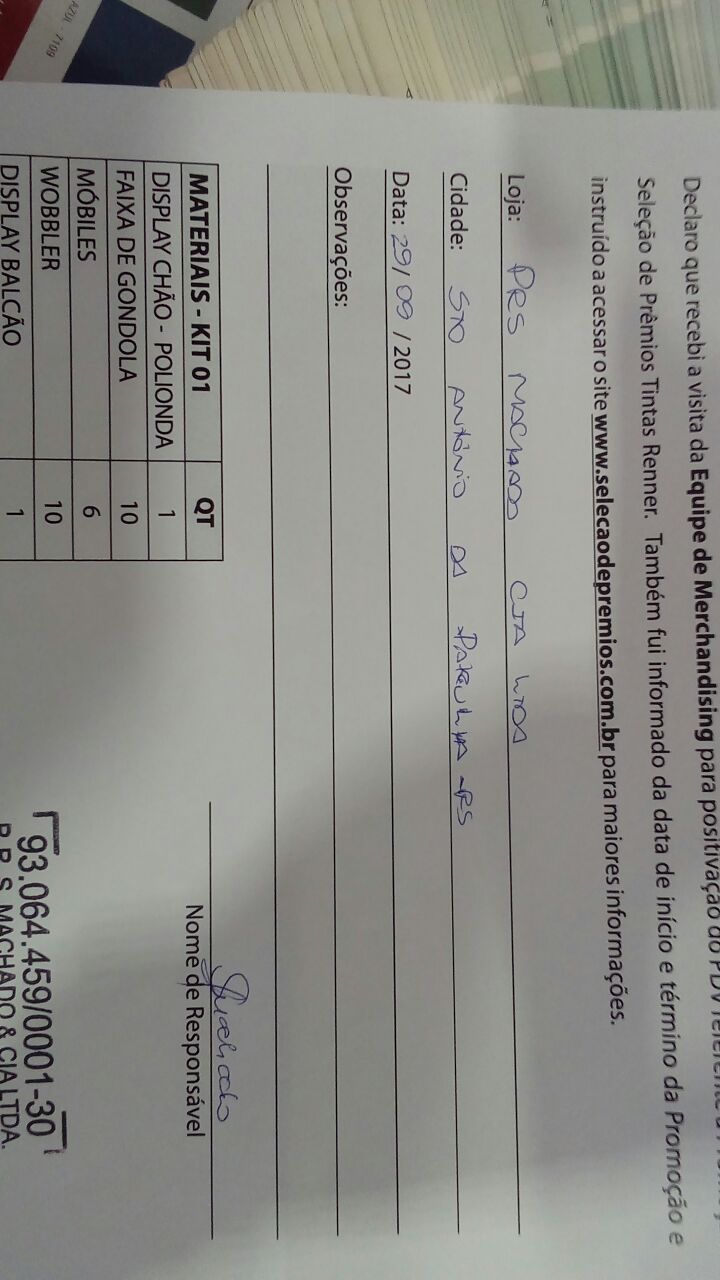 Declaro que recebi a visita da Equipe de Merchandising para positivação do PDV referente a
Seleção de Prêmios Tintas Renner. Também fui informado da data de início e término da Promoção e
instruído a acessar o site www.selecaodepremios.com.br para maiores informações.
Loja: PRS MACHADO CIA LTDA
Cidade: STO ANTÔNIO DA PATRULHA - RS
Data: 29/09/2017
Observações:
MATERIAIS - KIT 01 QT
DISPLAY CHÃO - POLIONDA 1
FAIXA DE GONDOLA 10
MÓBILES 6
WOBBLER 10
DISPLAY BALCÃO 1
Machado
Nome de Responsável
93.064.459/0001-30
P. R. S. MACHADO & CIA LTDA.